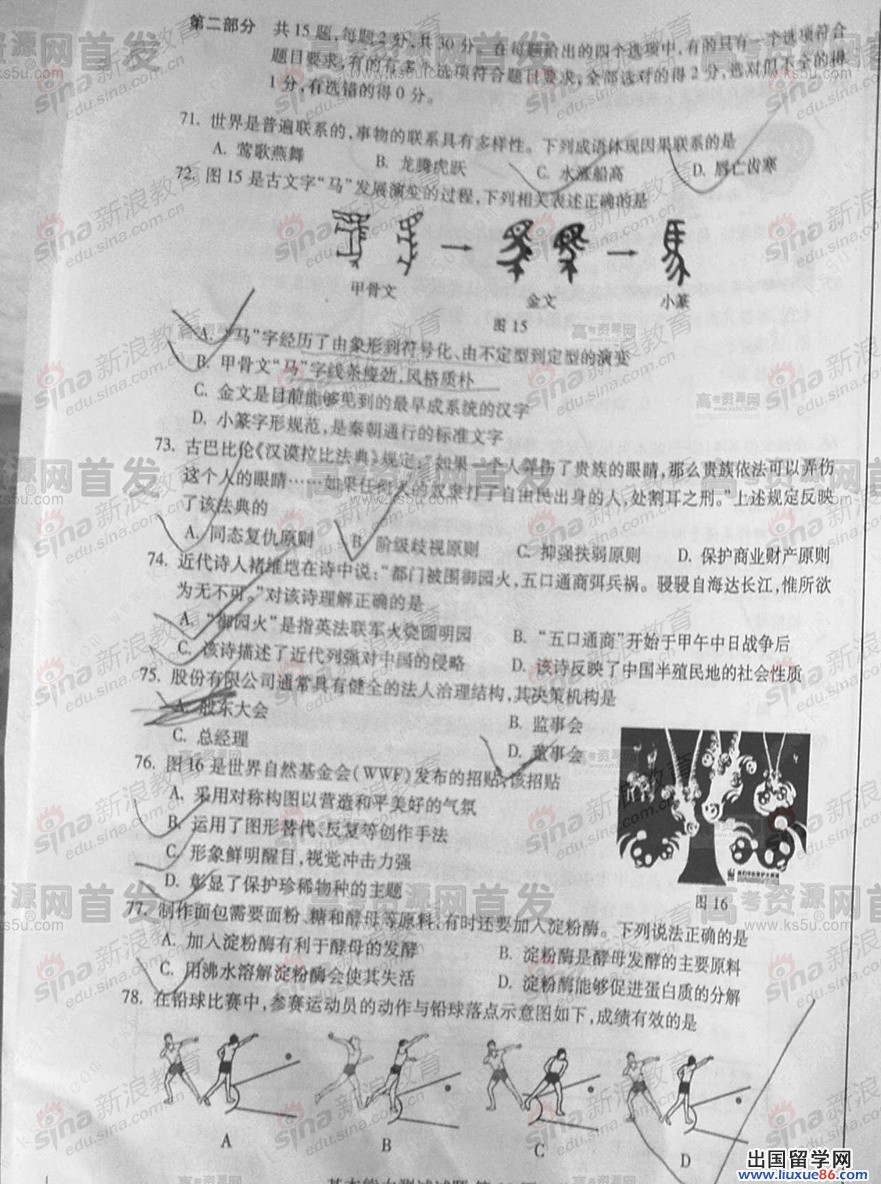 第二部分 共15题,每题2分,共30分。在每题给出的四个选项中,有的只有一个选项符合
题目要求,有的有多个选项符合题目要求,全部选对的得2分,选对但不全的得
1分,有选错的得0分。
71. 世界是普遍联系的,事物的联系具有多样性。下列成语体现因果联系的是
A. 莺歌燕舞 B. 龙腾虎跃 C. 水涨船高 D. 唇亡齿寒
72. 图15是古文字“马”发展演变的过程,下列相关表述正确的是
甲骨文 金文 小篆
图15
A. “马”字经历了由象形到符号化、由不定型到定型的演变
B. 甲骨文“马”字线条瘦劲,风格质朴
C. 金文是目前能够见到的最早成系统的汉字
D. 小篆字形规范,是秦朝通行的标准文字
73. 古巴比伦《汉谟拉比法典》规定:“如果一个人弄伤了贵族的眼睛,那么贵族依法可以弄伤
这个人的眼睛……如果任何人的奴隶打了自由民出身的人,处割耳之刑。”上述规定反映
了该法典的
A. 同态复仇原则 B. 阶级歧视原则 C. 抑强扶弱原则 D. 保护商业财产原则
74. 近代诗人褚维垲在诗中说:“都门被围御园火,五口通商弭兵祸。骎骎自海达长江,惟所欲
为无不可。”对该诗理解正确的是
A. “御园火”是指英法联军火烧圆明园 B. “五口通商”开始于甲午中日战争后
C. 该诗描述了近代列强对中国的侵略 D. 该诗反映了中国半殖民地的社会性质
75. 股份有限公司通常具有健全的法人治理结构,其决策机构是
A. 股东大会 B. 监事会
C. 总经理 D. 董事会
76. 图16是世界自然基金会(WWF)发布的招贴,该招贴
A. 采用对称构图以营造和平美好的气氛
B. 运用了图形替代、反复等创作手法
C. 形象鲜明醒目,视觉冲击力强
D. 彰显了保护珍稀物种的主题
图16
77. 制作面包需要面粉、糖和酵母等原料,有时还要加入淀粉酶。下列说法正确的是
A. 加入淀粉酶有利于酵母的发酵 B. 淀粉酶是酵母发酵的主要原料
C. 用沸水溶解淀粉酶会使其失活 D. 淀粉酶能够促进蛋白质的分解
78. 在铅球比赛中,参赛运动员的动作与铅球落点示意图如下,成绩有效的是
A B C D
出国留学网
www.liuxue86.com